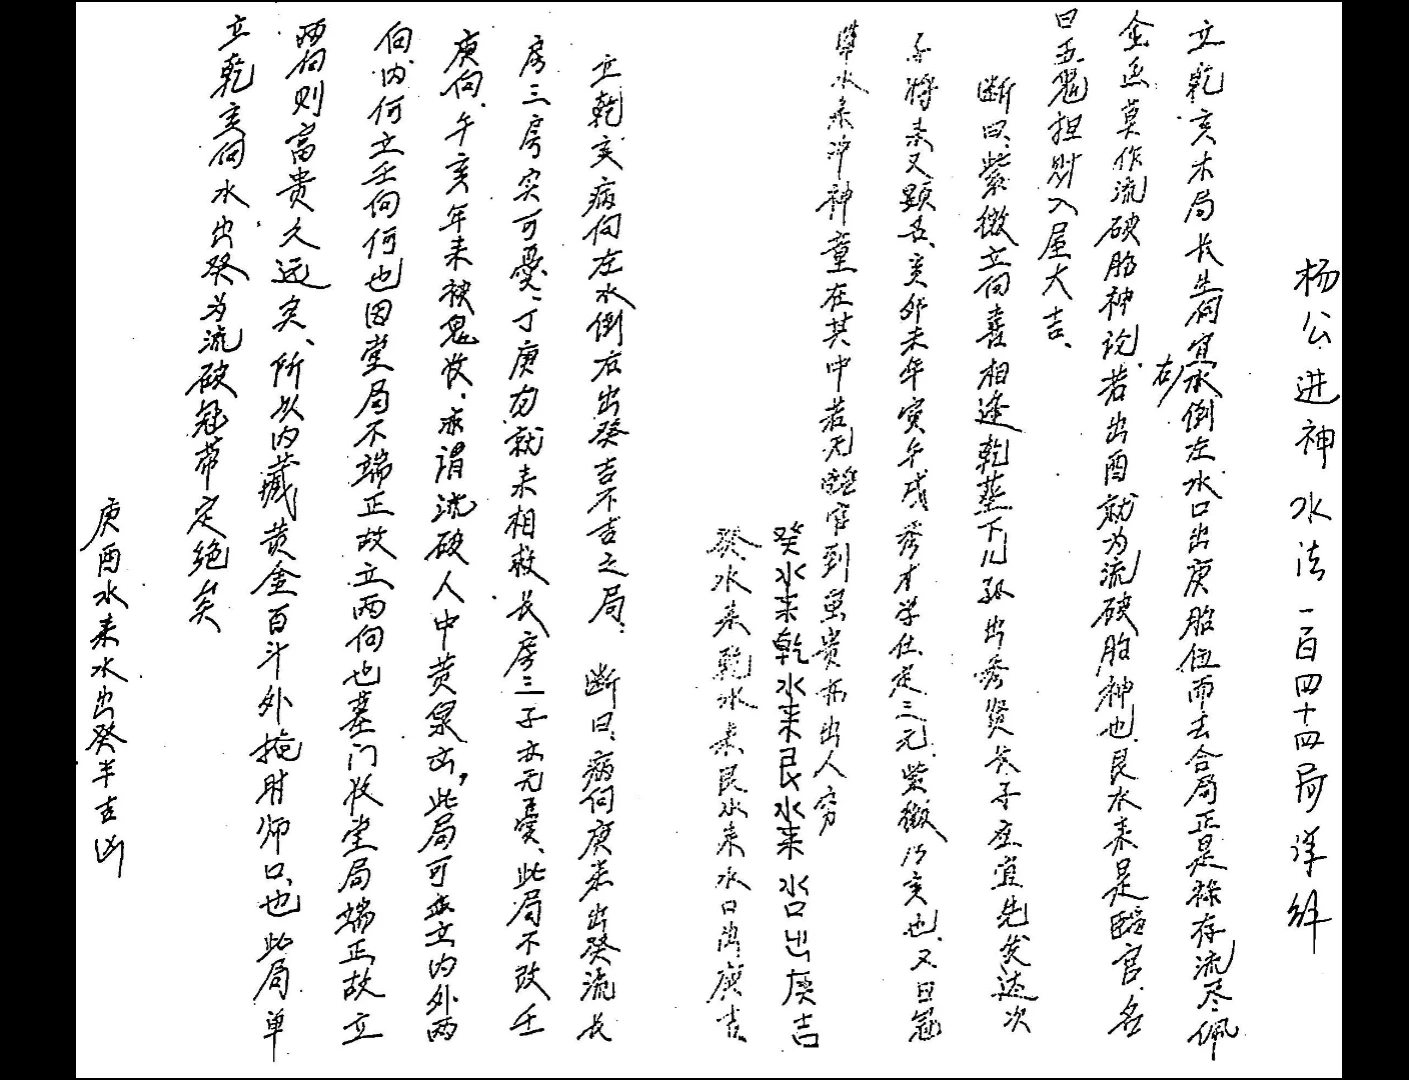 杨公进神水法一百四十四局详解
立乾亥木局长生向宜右水倒左水口出庚胎位而去合局正是禄存流尽佩
金鱼莫作流破胎神论若出酉就为流破胎神也艮水来是临官名
曰五鬼担财入屋大吉、
断曰、紫微立向喜相逢乾塟下儿孙出秀贤长子应宜先发达次
子将来又显名、亥卯未年寅午戌秀才学仕定三元紫微乃亥也又曰冠
带水来冲神童在其中若无临官到虽贵亦出人穷
癸水来乾水来艮水来水口出庚吉
癸水来乾水来艮水来水口出庚吉
立乾亥病向左水倒右出癸吉不吉之局、断曰、病向庚来出癸流长
房三房实可憂、丁庚向就来相救长房三子亦无憂、此局不改壬
庚向、午亥年来被鬼收、亦谓流破人中黄泉击，此局可立内外两
向内何立壬向何也因堂局不端正故立两向也墓门收堂局端正故立
两向则富贵久远矣、所以内藏黄金百斗外掩时师口也此局单
立乾亥向水出癸为流破冠带定绝矣
庚酉水来水出癸半吉凶